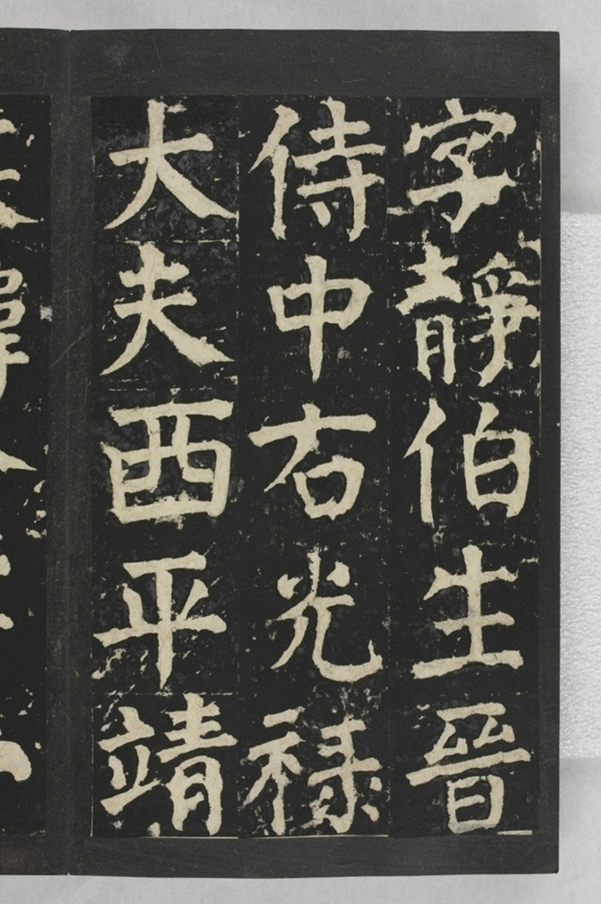 字靜伯生晉
侍中右光祿
大夫西平靖